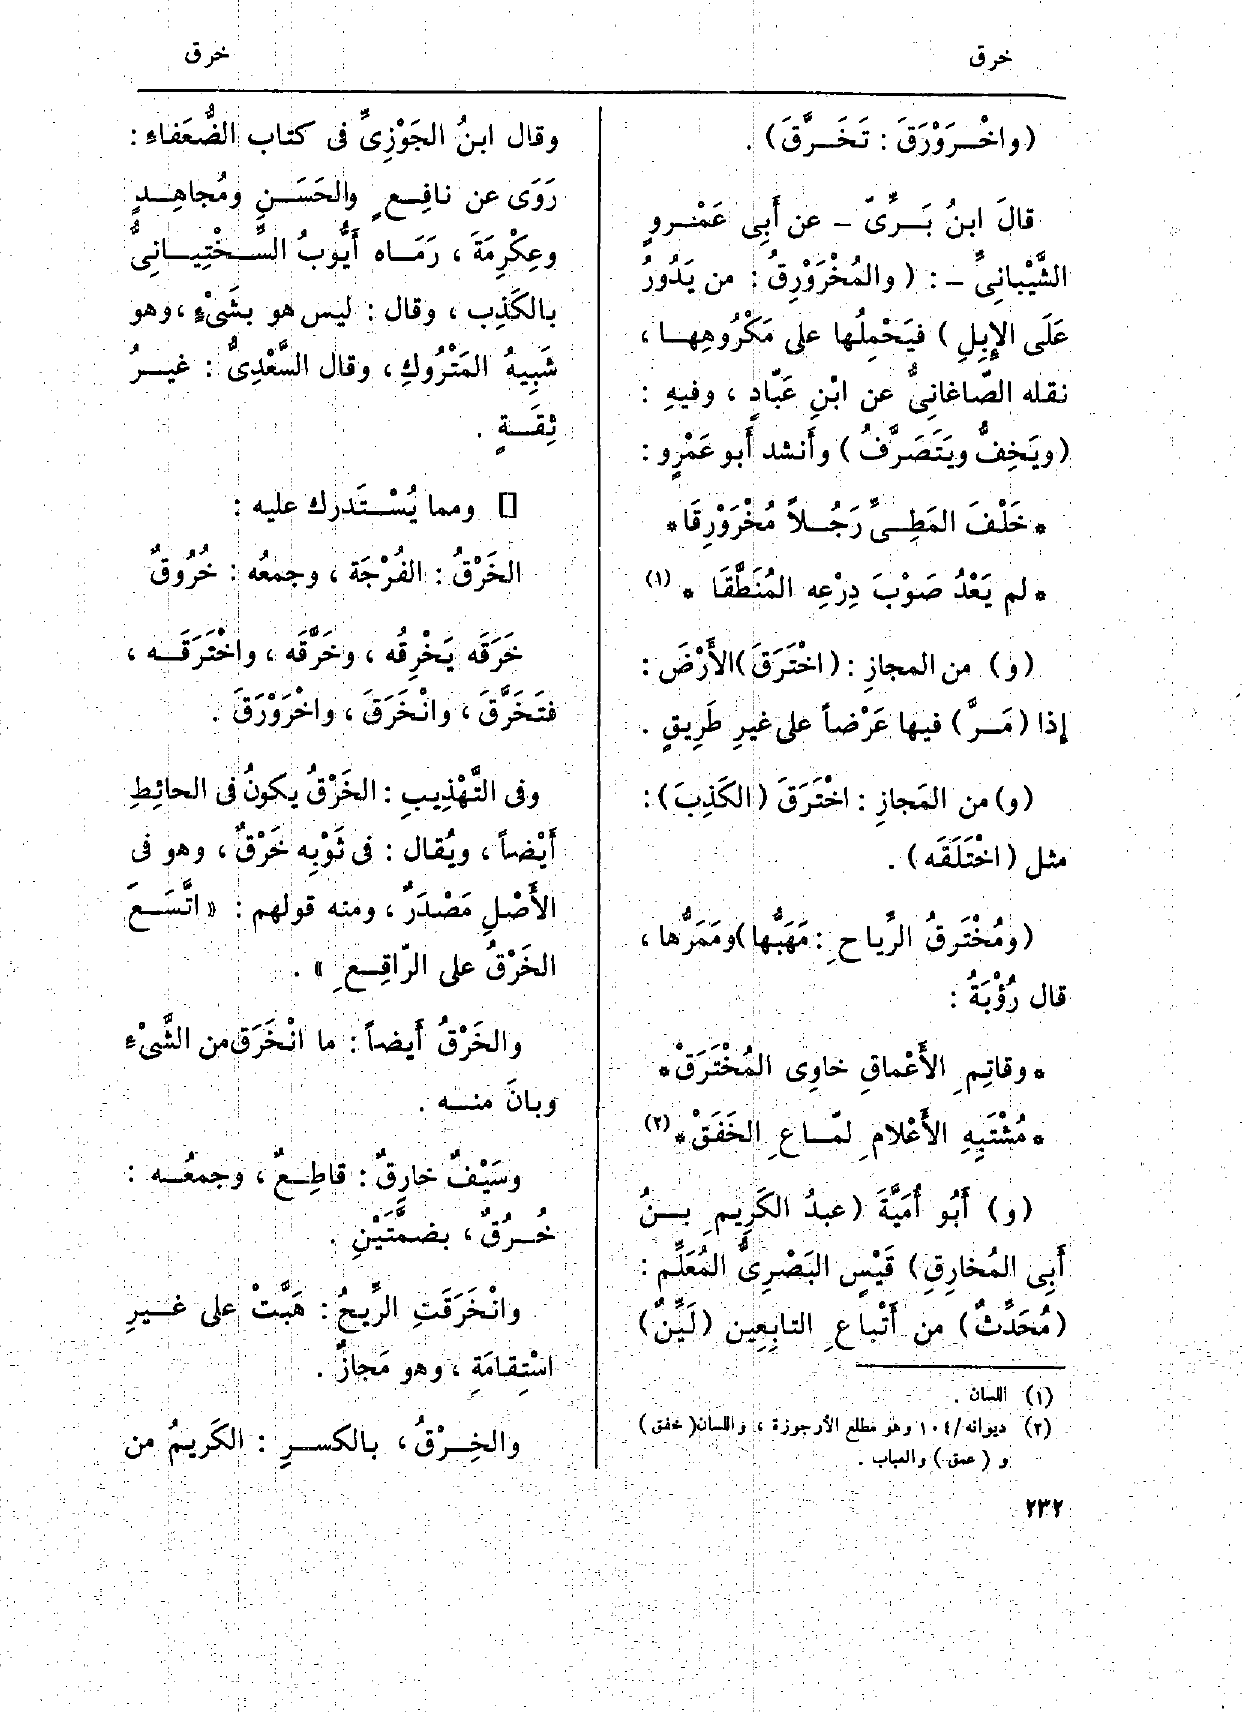 خرق
خرق
(واخْـرَوْرَقَ : تَخَـرَّقَ) .
قالَ ابنُ بَـرِّىّ – عن أَبِى عَمْـرٍو
الشَّيْبانِىِّ – : ( والمُخْرَوْرِقُ : من يَدُورُ
عَلَى الإِبِلِ ) فيَحْمِلُها على مَكْرُوهِهـا ،
نقله الصّاغانِىُّ عن ابْنِ عَبّادٍ ، وفيهِ :
(ويَخِفُّ ويَتَصَرَّفُ) وأَنشد أَبو عَمْرٍو :
* خَلْفَ المَطِـىِّ رَجُـلاً مُخْرَوْرِقَا *
* لم يَعْدُ صَوْبَ دِرْعِه المُنَطَّقَا * (١)
(و) من المجازِ : (اخْتَرَقَ) الأَرْضَ :
إذا (مَـرَّ) فيها عَرْضاً على غيرِ طَرِيقٍ .
(و) من المَجازِ : اخْتَرَقَ (الكَذِبَ) :
مثل (اخْتَلَقَه) .
(ومُخْتَرقُ الرِّياحِ : مَهَبُّها) ومَمَرُّها ،
قال رُؤْبَةُ :
* وقاتِمِ الأَعْماقِ خاوِى المُخْتَرَقْ *
* مُشْتَبِهِ الأَعْلامِ لمّـاعِ الخَفَقْ * (٢)
(و) أَبُو أُمَيَّةَ (عبدُ الكَرِيمِ بـنُ
أَبِى المُخارِقِ) قَيْسٍ البَصْرِىُّ المُعَلِّم :
(مُحَدِّثٌ) من أَتْباعِ التابِعِين (لَيِّنٌ)
(١) اللسان .
(٢) ديوانه/ ١٠٤ وهو مطلع الأرجوزة ، واللسان (خفق )
و ( عمق ) والعباب .
٢٣٢
وقال ابنُ الجَوْزِىِّ فى كتاب الضُّعَفاءِ :
رَوَى عن نافِـعٍ والحَسَـنِ ومُجاهِـدٍ
وعِكْرِمَةَ ، رَمَـاه أَيُّوبُ السَّـخْتِيـانِىُّ
بالكَذِب ، وقال : ليس هو بشَىْءٍ ، وهو
شَبِيهُ المَتْرُوكِ ، وقال السَّعْدِىُّ : غيـرُ
ثِقَـةٍ .
[] ومما يُسْـتَدرك عليه :
الخَرْقُ : الفُرْجَة ، وجمعُه : خُرُوقٌ
خَرَقَه يَخْرِقُه ، وخَرَّقَه ، واخْتَرَقَـه ،
فتَخَرَّقَ ، وانْخَرَقَ ، واخْرَوْرَقَ .
وفى التَّهْذِيبِ : الخَرْقُ يكونُ فى الحائِطِ
أَيْضاً ، ويُقال : فى ثَوْبِه خَرْقٌ ، وهو فى
الأَصْلِ مَصْدَرٌ ، ومنه قولهم : « اتَّسَـعَ
الخَرْقُ على الرّاقِـعِ » .
والخَرْقُ أَيضاً : ما انْخَرَقَ من الشَّىْءِ
وبانَ منـه .
وسَيْفٌ خارِقٌ : قاطِـعٌ ، وجمعُـه :
خُـرُقٌ ، بضمتَّيْنِ .
وانْخَرَقَتِ الرِّيحُ : هَبَّتْ على غيـرِ
اسْتِقامَةِ ، وهو مَجازٌ .
والخِـرْقُ ، بالكسرِ : الكَرِيمُ من